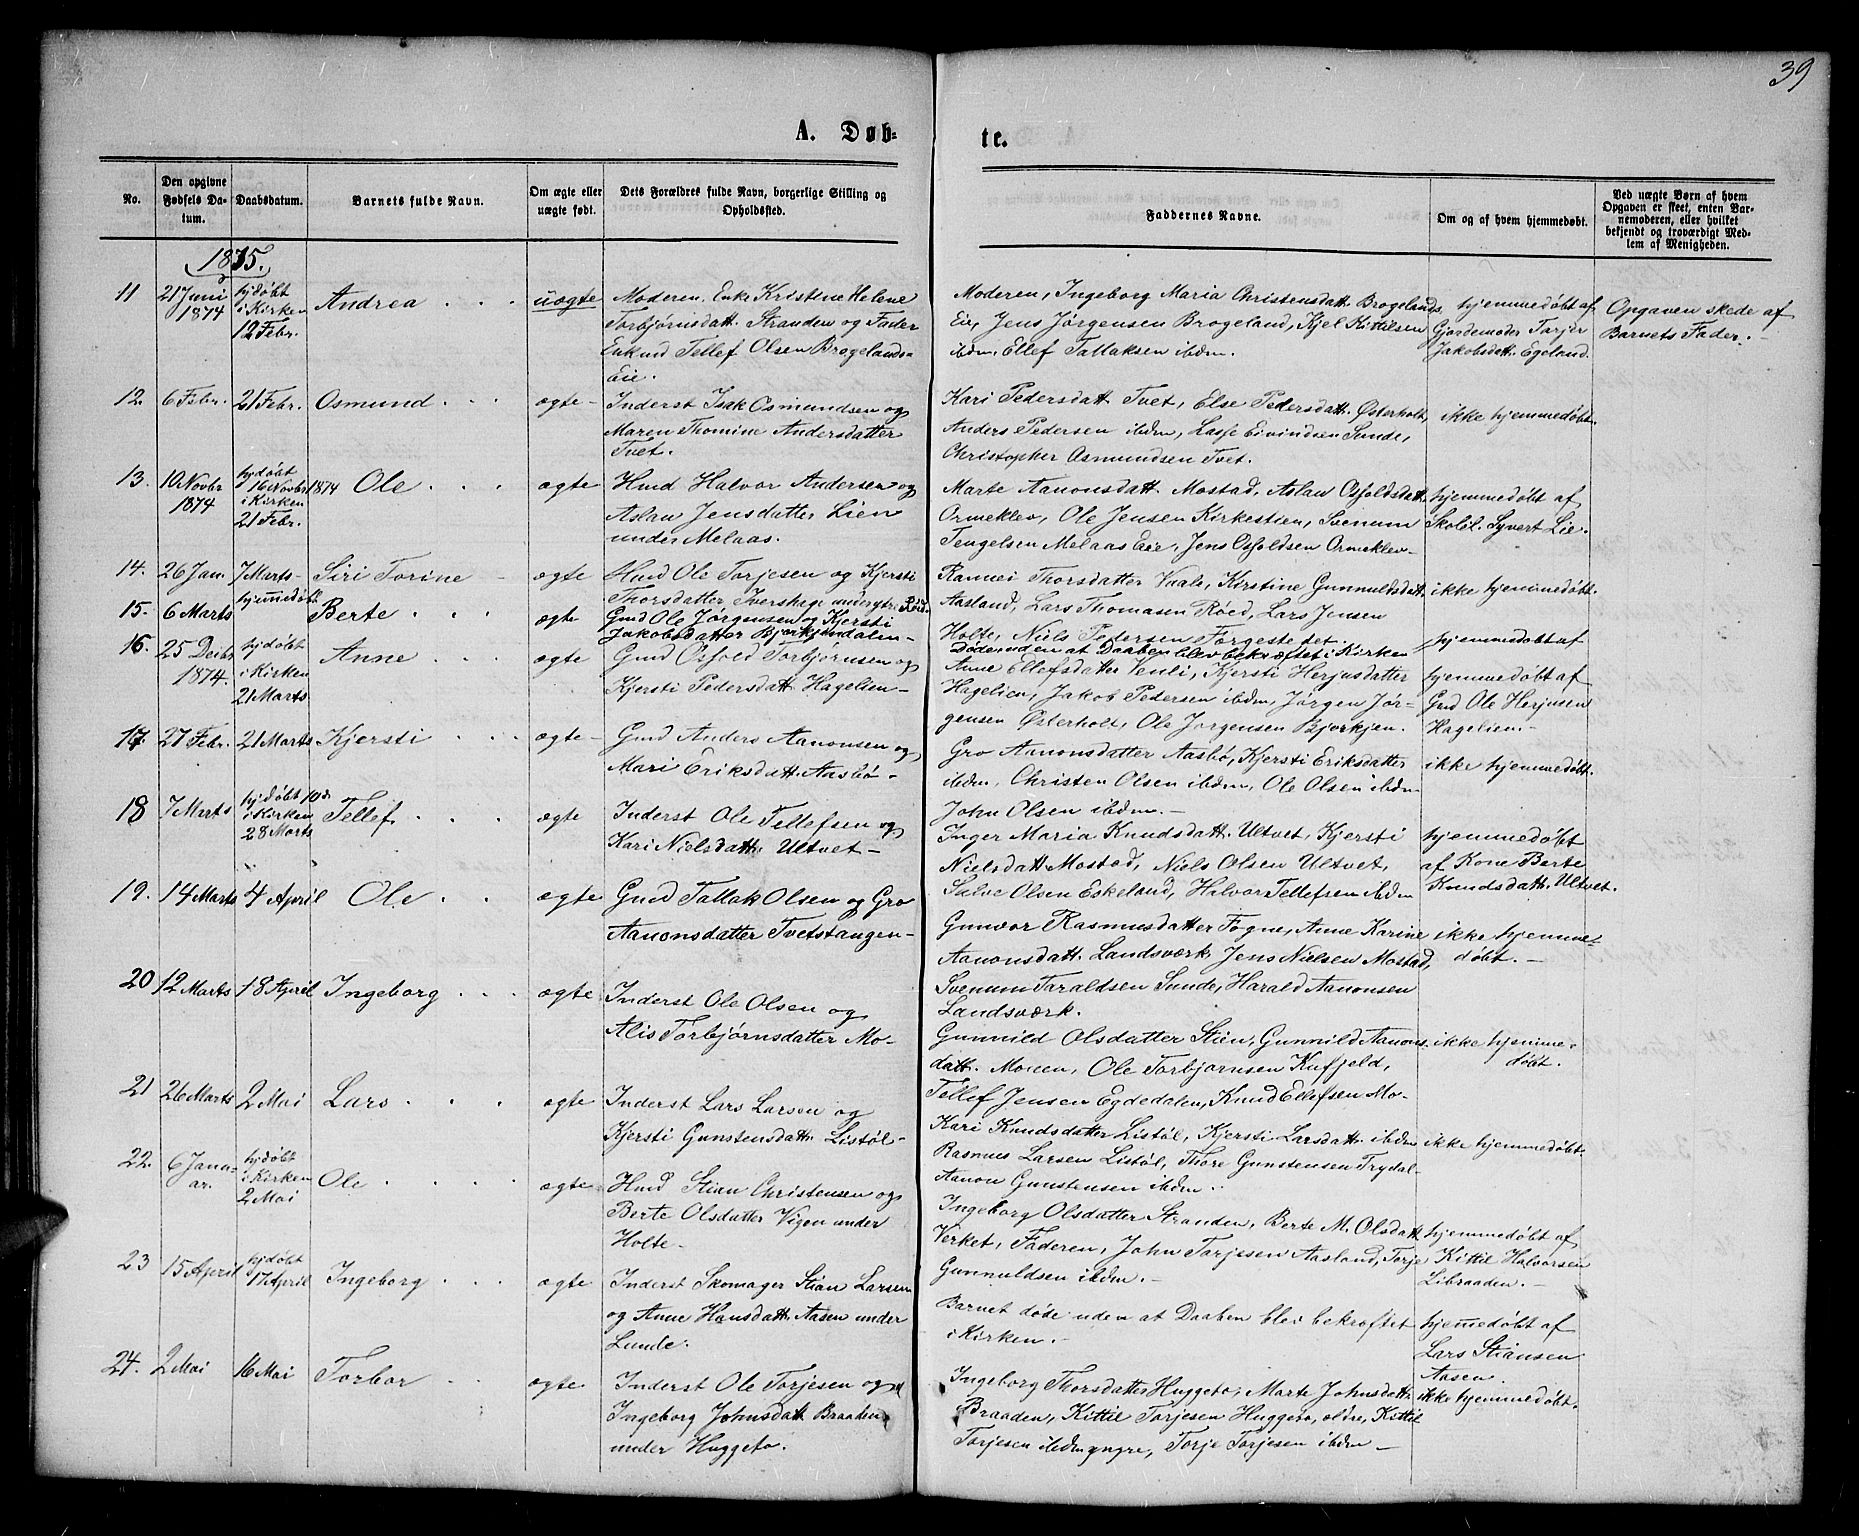 39
A. Døb-
te.
No.
Den opgivne Fødsels Datum.
Daabsdatum.
Barnets fulde Navn.
Om ægte eller uægte født.
Dets Forældres fulde Navn, borgerlige Stilling og Opholdssted.
Faddernes Navne.
Om og af hvem hjemmedøbt.
Ved uægte Børn af hvem Opgaven er skeet, enten Barnemoderen, eller hvilket bekjendt og troværdigt Medlem af Menigheden.
1875.
11
21 Juni 1874
hjdøbt
i Kirken
12 Febr.
Andrea
uægte
Moderen. Enke Kristine Helene
Torbjørnsdatt. Stranden og Fader
Enkmd Tellef Olsen Brogelands-
Eie.
Moderen, Ingeborg Maria Christensdatt. Brogelands
Eie, Jens Jørgensen Brogeland, Kjel Kittilsen
ibdm. Ellef Tallaksen ibdm.
hjemmedøbt af
Gjordemoder Torjer
Jakobsdatt. Egeland.
Opgaven skede af
Barnets Fader. -
12.
6 Febr.
21 Febr.
Osmund
ægte -
Inderst Isak Osmundsen og
Maren Thomine Andersdatter
Tvet.
Kari Pedersdatt Tvet, Else Pedersdatt. Østerholt,
Anders Pedersen ibdm, Lasse Eivindsen Sunde,
Christopher Osmundsen Tvet.
ikke hjemmedøbt.
13.
10 Novbr 1874
hjdøbt
16 Novbr 1874
i Kirken
21 Febr.
Ole
ægte
Hmd Halvor Andersen og
Aslau Jensdatter Lien
under Melaas.
Marte Aanonsdatt. Mostad, Aslau Osfoldsdatt.
Ormeklev, Ole Jensen Kirkestien, Svenum
Tengelsen Melaas Eie, Jens Osfoldsen Ormeklev-
hjemmedøbt af
Skoll. Syvert Lie.
14.
26 Jan.
7 Marts -
Siri Torine
ægte
Hmd Ole Torjesen og Kjersti
Thorsdatter Ivershage under ytre Røed
Rannei Thorsdatter Vaale, Kirstine Gunnuldsdatt.
Aasland, Lars Thomasen Røed, Lars Jensen
Holte, Niels Pedersen Torgestedet
ikke hjemmedøbt.
15.
6 Marts
hjemmedøbt
Berte
ægte
Gmd Ole Jørgensen og Kjersti
Jakobsdatter Bjorkjendalen -
Døde uden at Daaben blev bekræftet i Kirken
hjemmedøbt af
16.
25 Decbr 1874.
hjdøbt
i Kirken
21 Marts
Anne
ægte
Gmd Osfold Torbjørnsen og
Kjersti Pedersdatt. Hagelien -
Anne Ellefsdatter Venli, Kjersti Herjusdatter
Hagelien, Jakob Pedersen ibdm, Jørgen Jør-
gensen Østerholt, Ole Jørgensen Bjorkjen.
hjemmedøbt af
Gmd Ole Herjusen
Hagelien. -
17.
27 Febr.
21 Marts
Kjersti
ægte -
Gmd Anders Aanonsen og
Mari Eriksdatt. Aasbø -
Gro Aanonsdatter Aasbø, Kjersti Eriksdatter
ibdm, Christen Olsen ibdm, Ole Olsen ibdm
John Olsen ibdm. -
ikke hjemmedøbt.
18
7 Marts
hjdøbt 10 ds
i Kirken
28 Marts
Tellef
ægte
Inderst Ole Tellefsen og
Kari Nielsdatt. Ultvet -
Inger Maria Knudsdatt. Ultvet, Kjersti
Nielsdatt. Mostad, Niels Olsen Ultvet,
Salve Olsen Eskeland, Halvor Tellefsen ibdm
hjemmedøbt
af Kone Berte
Knudsdatt. Ultvet.
19.
14 Marts
4 April
Ole
ægte
Gmd Tallak Olsen og Gro
Aanonsdatter Tvetstangen -
Gunvor Rasmusdatter Fogne, Anne Karine
Aanonsdatt. Landsværk, Jens Nielsen Mostad,
Svenum Taraldsen Sunde, Harald Aanonsen
Landsværk.
ikke hjemme-
døbt. -
20
12 Marts
18 April
Ingeborg
ægte
Inderst Ole Olsen og
Alis Torbjørnsdatter Mo -
Gunnild Olsdatter Stien, Gunnild Aanons-
datt. Moeen, Ole Torbjørnsen Kufjeld,
Tellef Jensen Egdedalen, Knud Ellefsen Mo -
ikke hjemme-
døbt.
21
26 Marts
2 Mai
Lars
ægte
Inderst Lars Larsen og
Kjersti Gunstensdatt. Listøl -
Kari Knudsdatter Listøl, Kjersti Larsdatt. ibdm
Rasmus Larsen Listøl, Thore Gunstensen Trydal
Aanon Gunstensen ibdm.
ikke hjemmedøbt.
22.
6 Janu-
ar.
hjdøbt
i Kirken
2 Mai
Ole
ægte
Hmd Stian Christensen og
Berte Olsdatter Vigen under
Holte -
Ingeborg Olsdatter Stranden, Berte M. Olsdatt.
Verket, Faderen, John Torjesen Aasland, Torje
Gunnuldsen ibdm. -
hjemmedøbt af
Kittil Halvorsen
Libraaden. -
23
15 April
hjdøbt
17 April
Ingeborg
ægte
Inderst Skomager Stian Larsen
og Anne Hansdatt. Aasen under
Lunde.
Barnet døde uden at Daaben blei bekræftet
i Kirken. -
hjemmedøbt af
Lars Stiansen
Aasen.
24.
2 Mai
16 Mai
Torbor
ægte
Inderst Ole Torjesen og
Ingeborg Johnsdatt Braaden
under Huggeto.
Ingeborg Thorsdatter Huggeto, Marte Johnsdatt.
Braaden, Kittil Torjesen Huggeto, ældre, Kittil
Torjesen ibdm yngre, Torje Torjesen ibdm -
ikke hjemmedøbt.